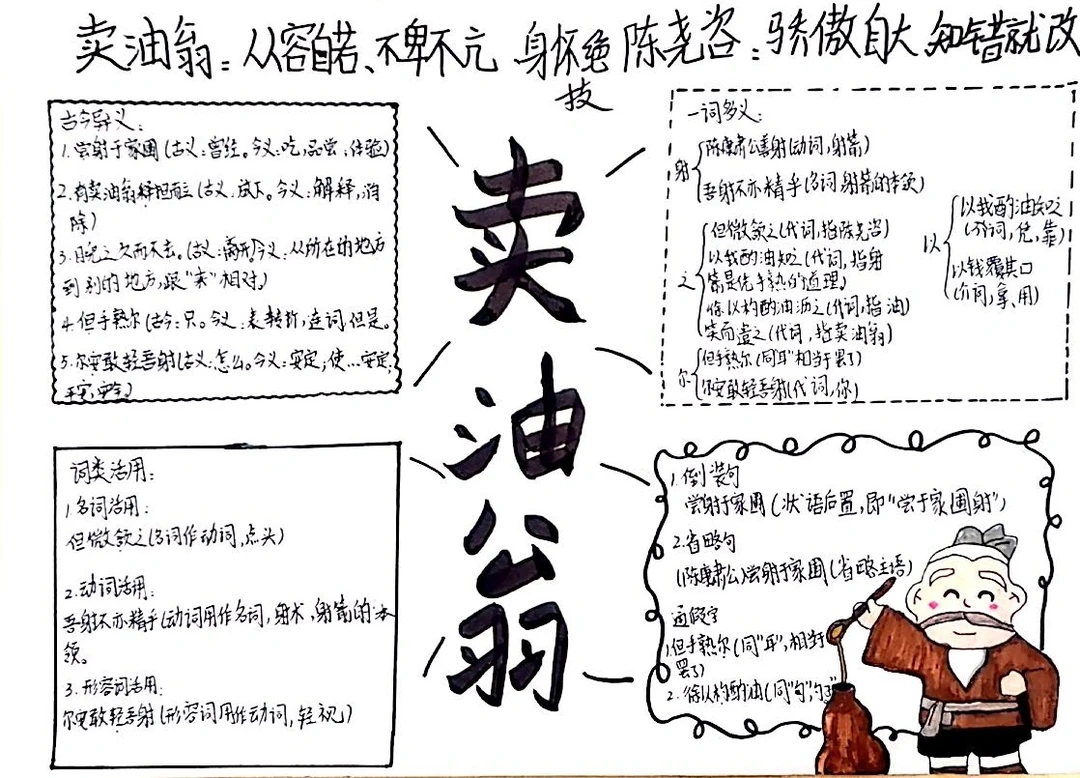 卖油翁：从容自若、不卑不亢 身怀绝技
陈尧咨：骄傲自大 知错就改
古今异义：
1.尝射于家圃(古义：曾经。今义：吃,品尝；体验)
2.有卖油翁释担而立(古义：放下。今义：解释,消
除)
3.睨之久而不去。(古义：离开今义：从所在的地方
到别的地方,跟"来"相对)
4.但手熟尔(古今：只。今义：表转折,连词,但是。
5.尔安敢轻吾射(古义：怎么。今义：安定；使…安定;
平安,安全)
卖
油
翁
一词多义：
射
陈康肃公善射(动词,射箭)
吾射不亦精乎(名词,射箭的本领)
之
但微颔之(代词,指陈尧咨)
以我酌油知之(代词,指射
箭是凭手熟的道理)
徐以杓酌油沥之(代词,指油)
笑而遣之(代词,指卖油翁)
尔
但手熟尔(同"耳"相当于罢了)
尔安敢轻吾射(代词,你)
以
以我酌油知之
(介词,凭,靠)
以钱覆其口
(介词,拿、用)
词类活用：
1.名词活用：
但微颔之(名词作动词,点头)
2.动词活用：
吾射不亦精乎(动词用作名词,射术,射箭的本
领。
3.形容词活用：
尔安敢轻吾射(形容词用作动词,轻视)
1.倒装句
尝射于家圃(状语后置,即"尝于家圃射")
2.省略句
(陈康肃公)尝射于家圃(省略主语)
通假字
1.但手熟尔(同"耳",相当于
罢了)
2.徐以杓酌油(同"勺"